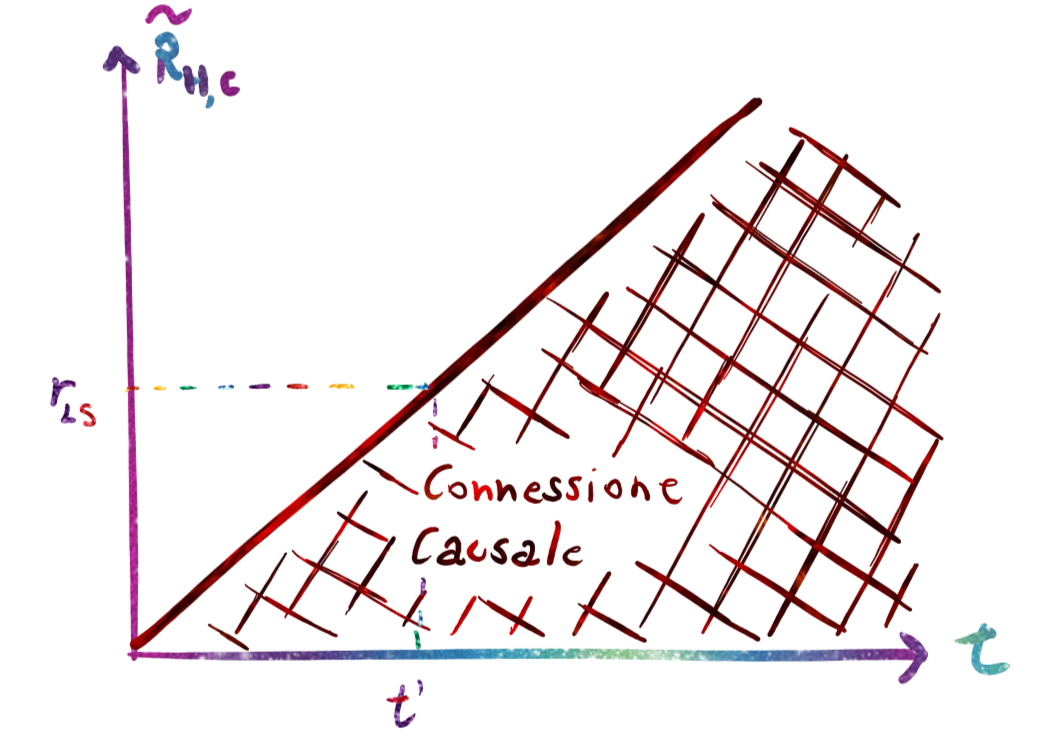 R̃_H,C
r_LS
Connessione
Causale
t
t'